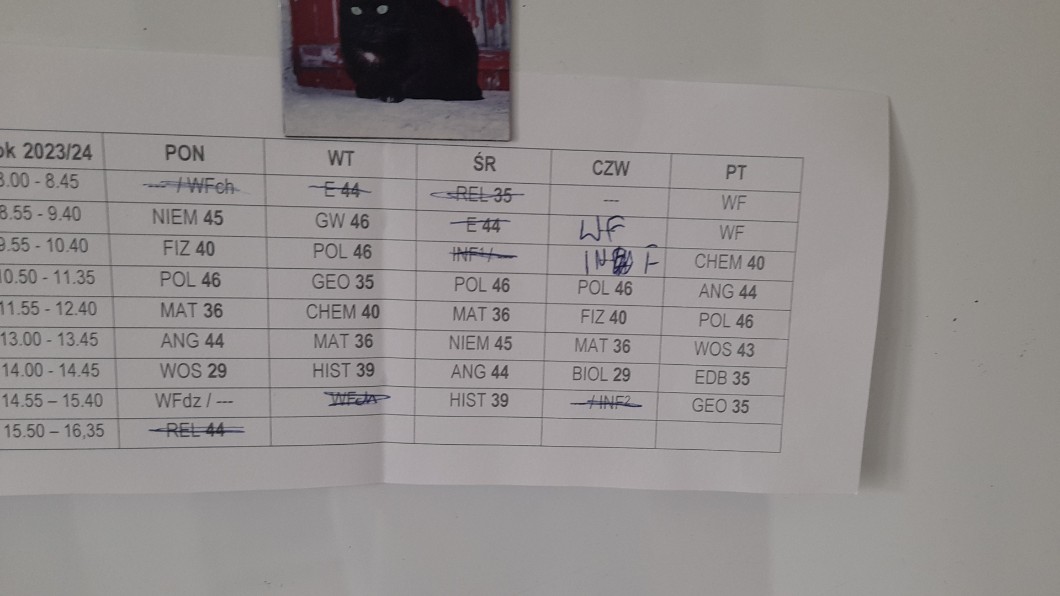 ok 2023/24 PON WT ŚR CZW PT
8.00 - 8.45 --- / WFch E 44 REL 35 --- WF
8.55 - 9.40 NIEM 45 GW 46 E 44 WF WF
9.55 - 10.40 FIZ 40 POL 46 INF¹/--- CHEM 40
10.50 - 11.35 POL 46 GEO 35 POL 46 POL 46 ANG 44
11.55 - 12.40 MAT 36 CHEM 40 MAT 36 FIZ 40 POL 46
13.00 - 13.45 ANG 44 MAT 36 NIEM 45 MAT 36 WOS 43
14.00 - 14.45 WOS 29 HIST 39 ANG 44 BIOL 29 EDB 35
14.55 – 15.40 WFdz / --- WFch HIST 39 -/INF² GEO 35
15.50 – 16,35 REL 44